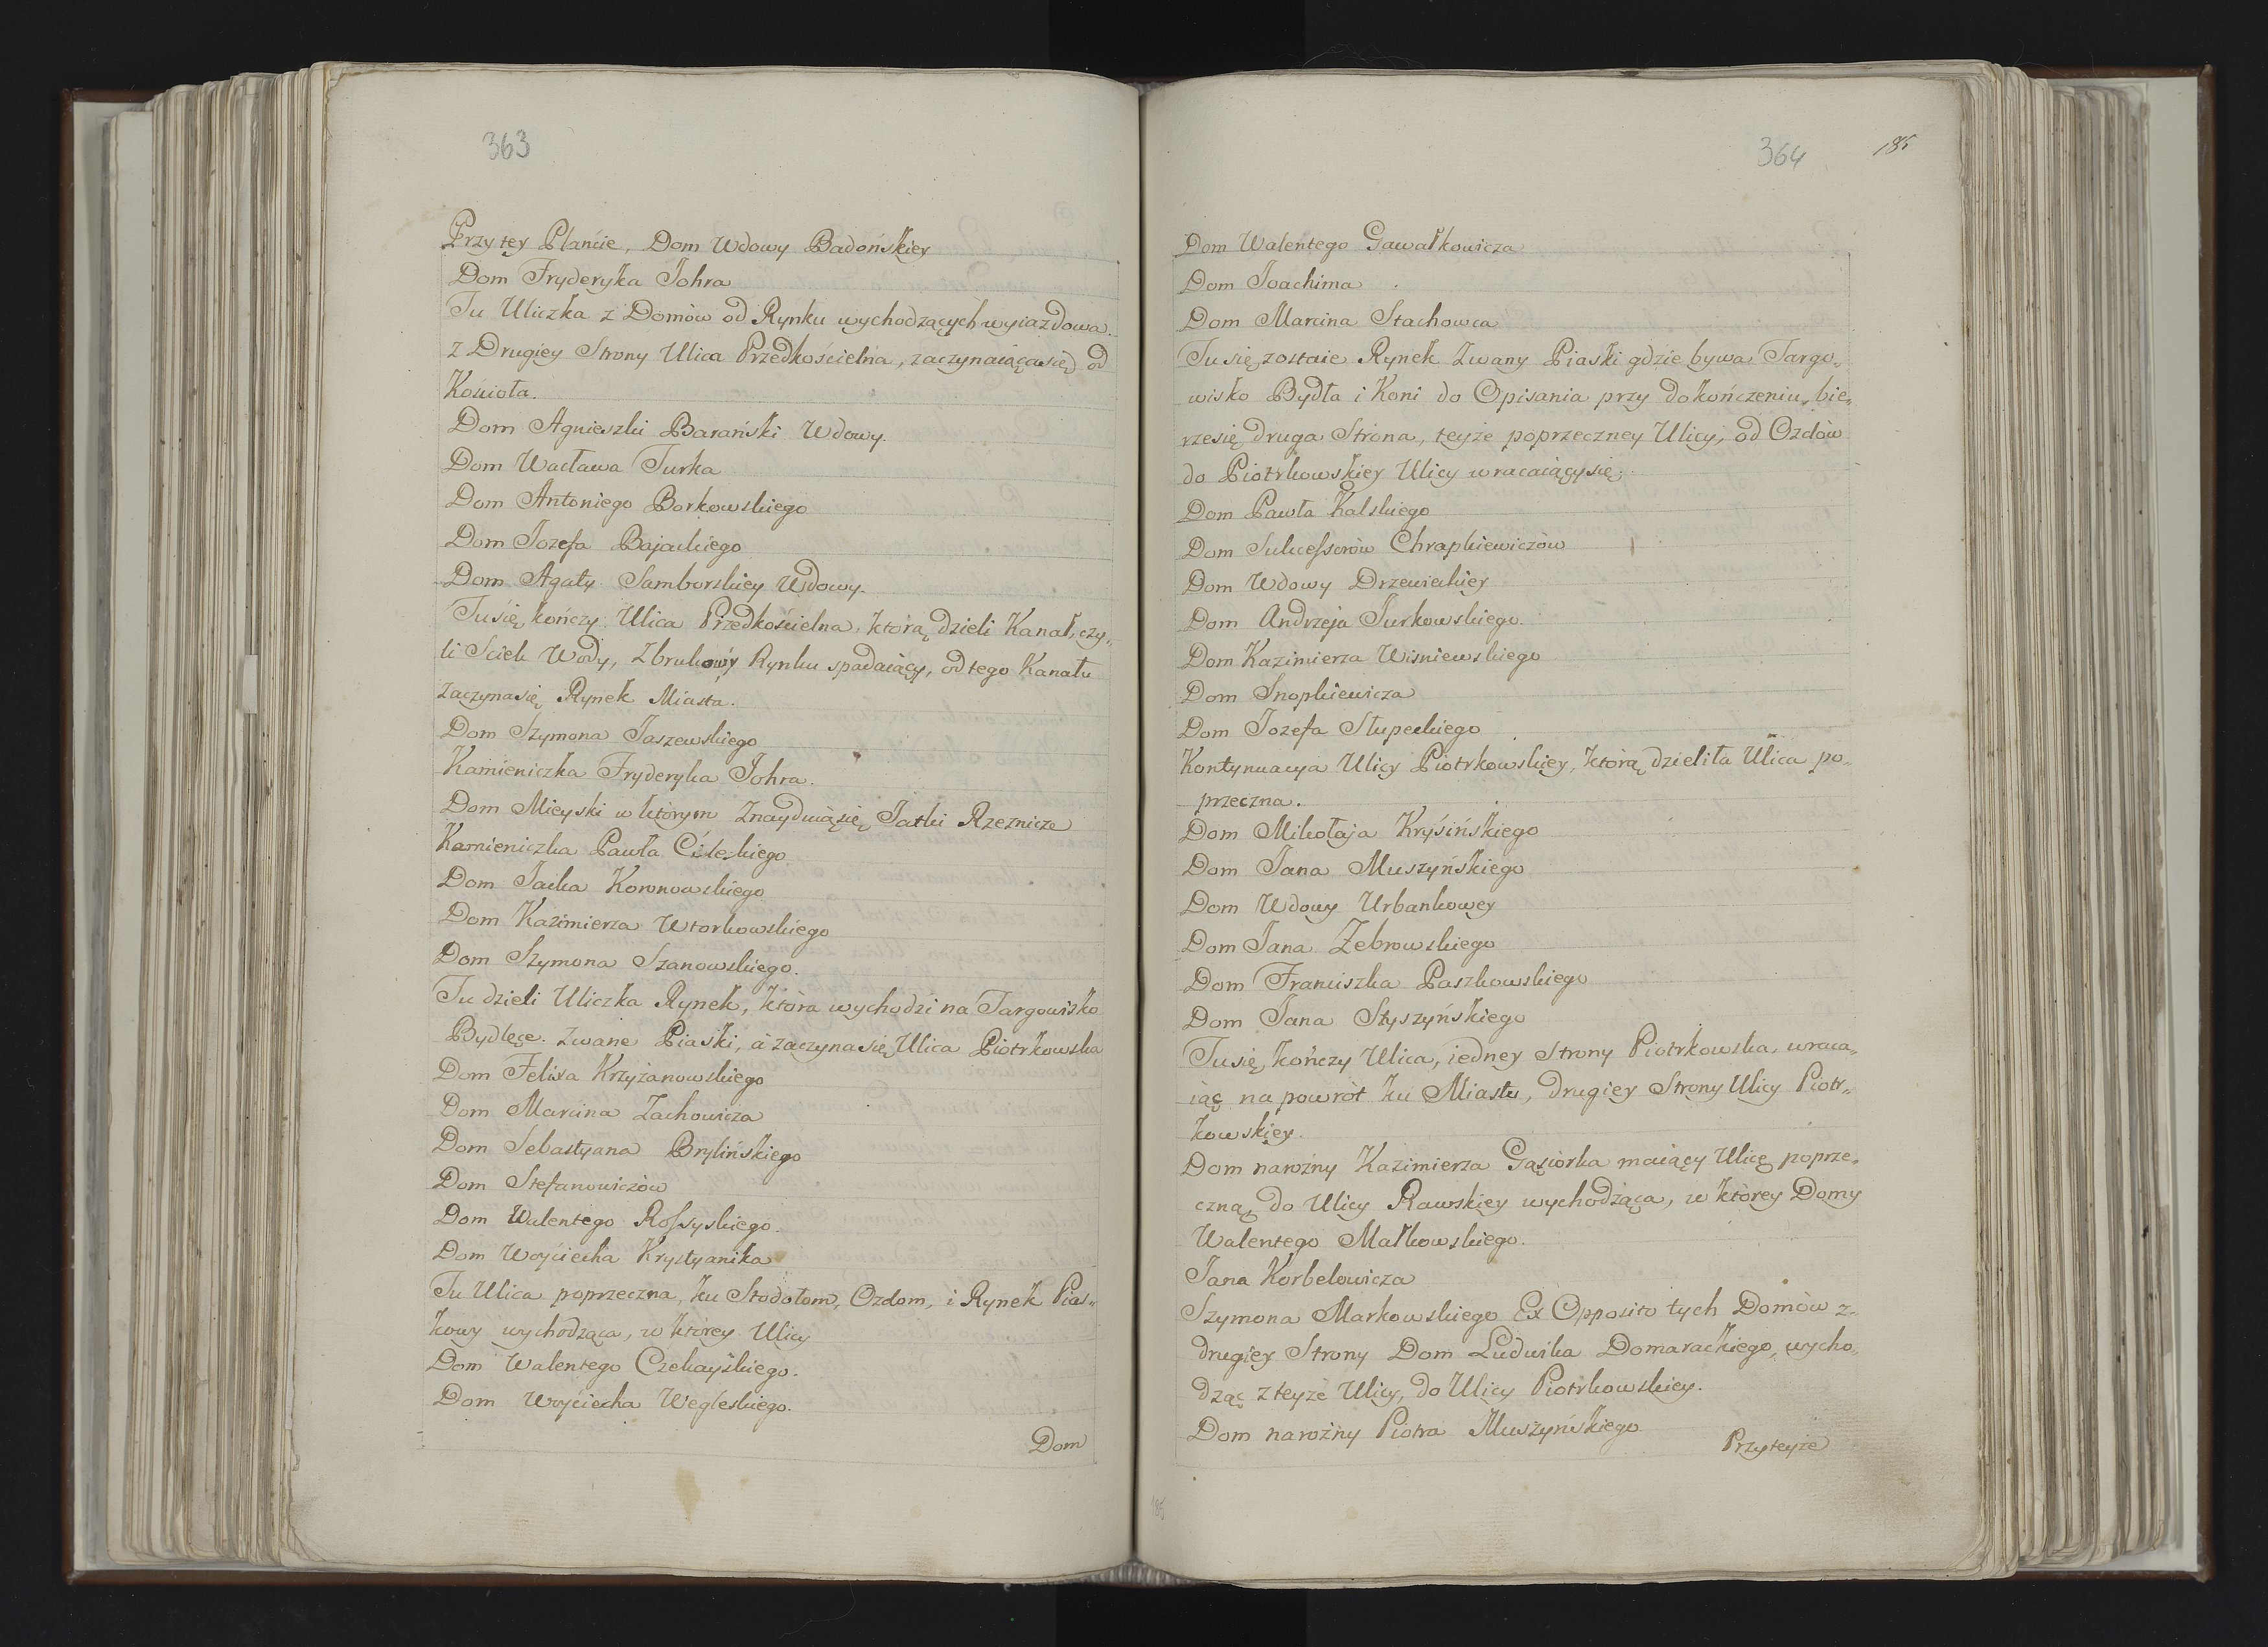 363
Przy tey Plańcie, Dom Wdowy Badońskiey
Dom Fryderyka Johra
Tu Uliczka z Domów od Rynku wychodzących wyiazdowa.
z Drugiey Strony Ulica Przedkościelna, zaczynaiąca się od
Kościoła.
Dom Agnieszki Barański Wdowy.
Dom Wacława Turka
Dom Antoniego Borkowskiego
Dom Jozefa Bajackiego
Dom Agaty Samborskiey Wdowy.
Tu się kończy Ulica Przedkościelna, którą dzieli Kanał, czy„
li Sciek Wody, z brukowy Rynku spadaiący, od tego Kanału
zaczyna się Rynek Miasta.
Dom Szymona Jaszewskiego
Kamieniczka Fryderyka Johra.
Dom Mieyski w którym znayduią się Jatki Rzeznicze
Kamieniczka Pawła
Dom Jacka Koronowskiego
Dom Kazimierza Wtorkowskiego
Dom Szymona Szanowskiego.
Tu dzieli Uliczka Rynek, która wychodzi na Targowisko
Bydlęce. zwane Piaski, a zaczyna się Ulica Piotrkowska
Dom Felixa Krzyżanowskiego
Dom Marcina Zachowicza
Dom Sebastyana Brylińskiego
Dom Stefanowiczów
Dom Walentego Rossyskiego.
Dom Woyciecha Krystyanika
Tu Ulica poprzeczna, ku Stodołom, Ozdom, i Rynek Pias„
kowy wychodząca, w którey Ulicy
Dom Walentego Czekayskiego.
Dom Woyciecha Węgleskiego.
Dom
364 185
Dom Walentego Gawałkowicza
Dom Joachima
Dom Marcina Stachowca
Tu się zostaie Rynek zwany Piaski gdzie bywa Targo„
wisko Bydła i Koni do Opisania przy dokończeniu, bie„
rze się druga Strona, teyże poprzeczney Ulicy, od Ozdów
do Piotrkowskiey Ulicy wracaiący się.
Dom Pawła Kalskiego
Dom Sukcessorów Chrapkiewiczów
Dom Wdowy Drzewieckiey
Dom Andrzeja Jurkowskiego.
Dom Kazimierza Wisniewskiego
Dom Snopkiewicza
Dom Jozefa Słupeckiego
Kontynuacya Ulicy Piotrkowskiey, którą dzieliła Ulica po„
przeczna.
Dom Mikołaja Krysińskiego
Dom Jana Muszyńskiego
Dom Wdowy Urbankowey
Dom Jana Zebrowskiego
Dom Franciszka Paszkowskiego
Dom Jana Styszyńskiego
Tu się kończy Ulica, iedney Strony Piotrkowska, wraca„
iąc na powrót ku Miastu, drugiey Strony Ulicy Piotr„
kowskiey.
Dom narożny Kazimierza Gąsiorka maiący Ulicę poprze„
czną do Ulicy Rawskiey wychodząca, w którey Domy
Walentego Małkowskiego.
Jana Korbelowicza
Szymona Markowskiego Ex Opposito tych Domów z„
drugiey Strony Dom Ludwika Domarackiego, wycho„
dząc z teyże Ulicy, do Ulicy Piotrkowskiey.
Dom narożny Piotra Muszyńskiego
Przy teyże
185